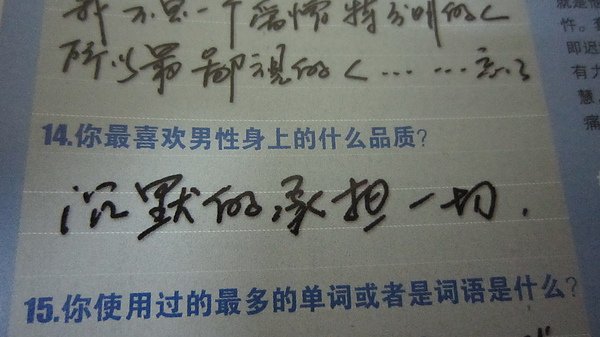 我不是一个爱憎特分明的人
所以最鄙视的人……忘了
14.你最喜欢男性身上的什么品质?
沉默的承担一切.
15.你使用过的最多的单词或者是词语是什么?
就是他
件。
即迟
有力
慧。
痛